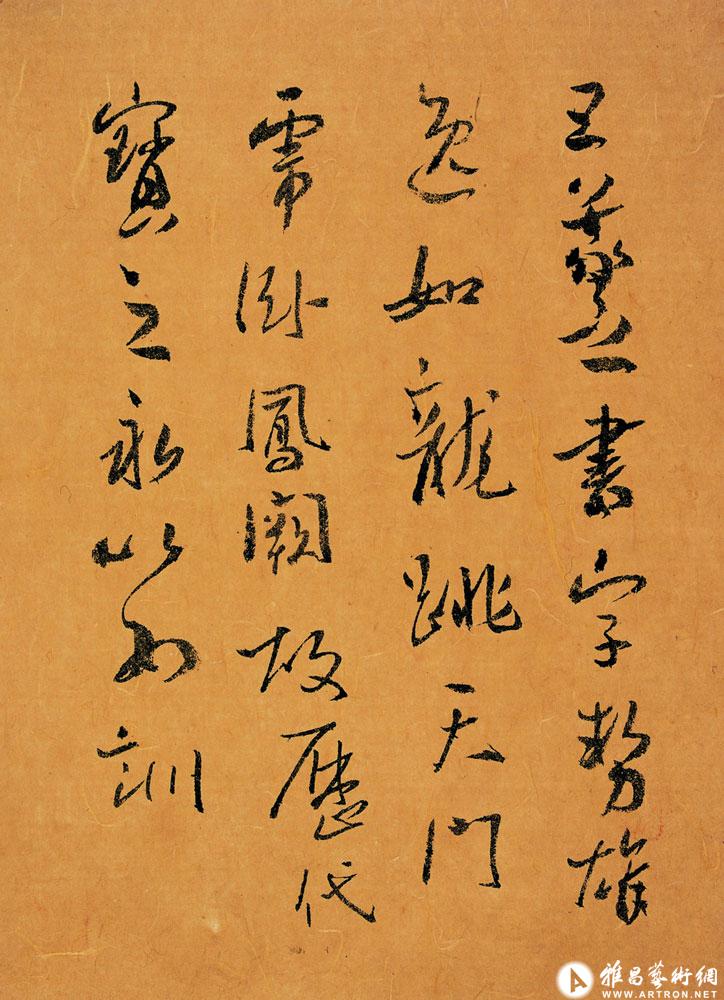 王羲之書字勢雄
逸如龍跳天門
虎卧鳳闕故歷代
寶之永以為訓
雅昌藝術網
WWW.ARTRON.NET